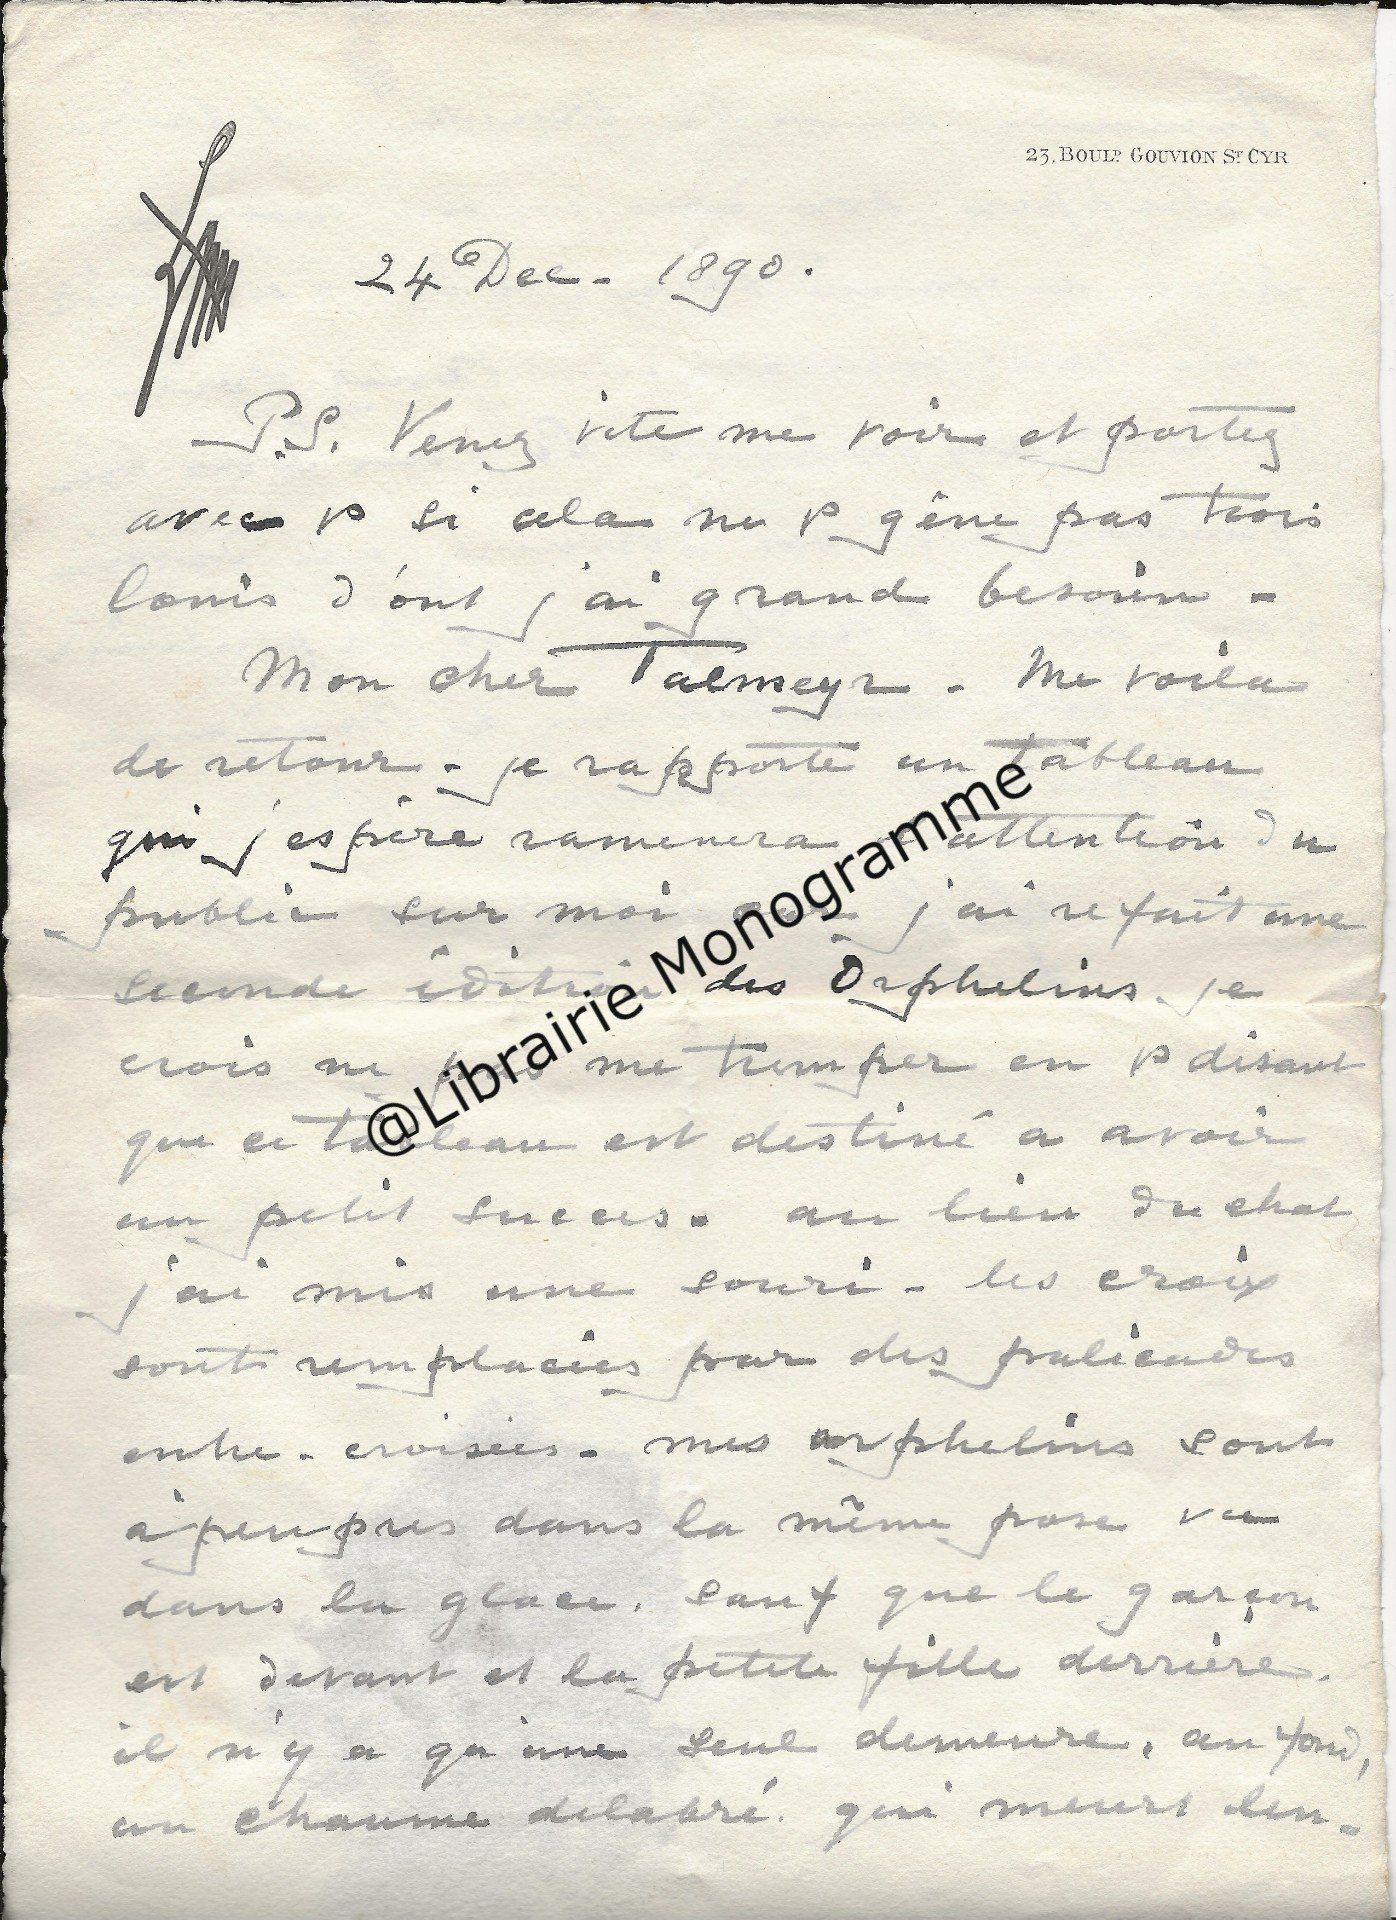 23, BOULD GOUVION ST CYR
24 Dec - 1890.
P.S. Venez vite me voir et portez
avec v si cela ne v gêne pas trois
louis d'ont j'ai grand besoin -
Mon cher Talmeyr - Me voila
de retour - je rapporte un tableau
qui j'espère ramenera l'attention du
public sur moi j'ai refait une
seconde édition des Orphelins - je
crois ne pas me tromper en v disant
que ce tableau est destiné a avoir
un petit succes. au lieu du chat
j'ai mis une souri - les croix
sont remplacées par des palicades
entre-croisées - mes orphelins sont
à peu pres dans la même pose vu
dans la glace. sauf que le garçon
est devant et la petite fille derrière.
il n'y a qu'une seul demeure, au fond,
un chaume delabré. qui meurt len-
@Librairie Monogramme